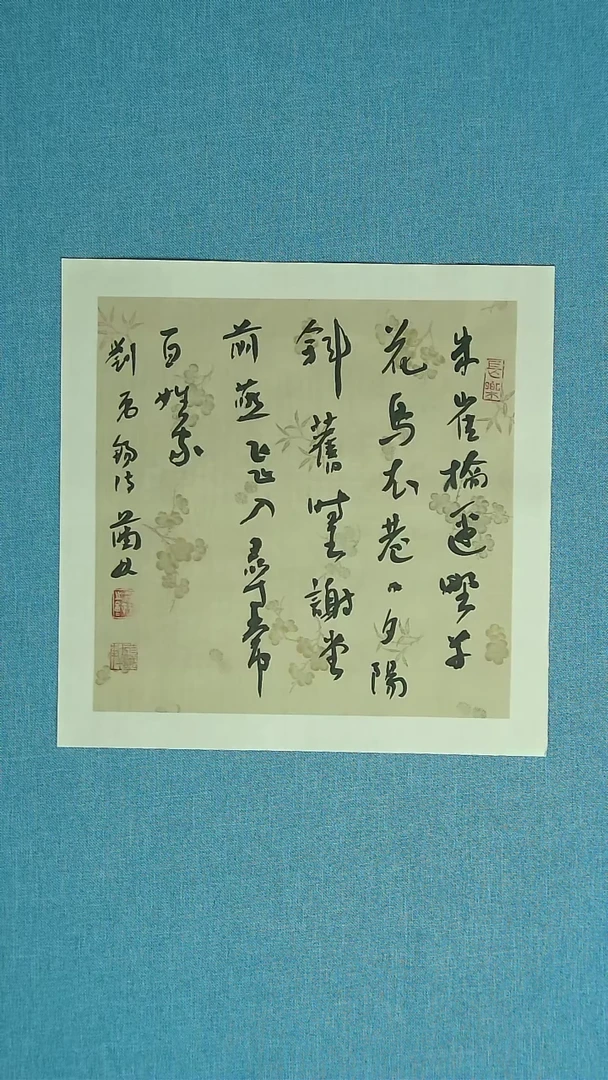 長樂
朱雀橋邊野草
花烏衣巷口夕陽
斜舊時王謝堂
前燕飛入尋常
百姓家
劉禹錫詩